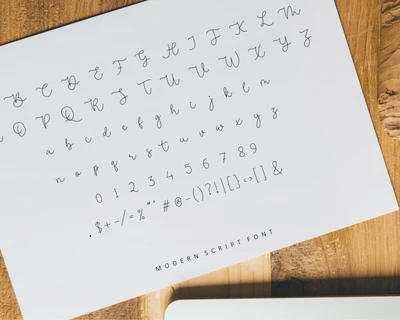 B C D E F G H I J K L M
O P Q R S T U V W X Y Z
a b c d e f g h i j k l m
n o p q r s t u v w x y z
0 1 2 3 4 5 6 7 8 9
. $ + - / = % " ' # @ - ( ) ? ! | { } < > [ ] &
MODERN SCRIPT FONT